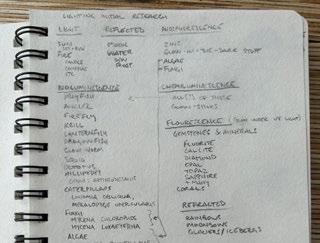 LIGHTING INITIAL RESEARCH
LIGHT
FIRE
CANDLE
CAMPFIRE
ETC
REFLECTED
MOON
WATER
FROST
ZINC
GLOW-IN-THE-DARK STUFF
ALGAE
FUNGI
BIOLUMINESCENCE
ANGLER
FIREFLY
KRILL
LANTERNFISH
DRAGONFISH
GLOW WORM
SQUID
OCTOPUS
MILLIPEDES
CATERPILLARS
FUNGI
MYCENA CHLOROPHOS
MYCENA LUXAETERNA
ALGAE
CHEMILUMINESCENCE
GLOW-STICKS
FLOURESCENCE (GLOW UNDER UV LIGHT)
GEMSTONES & MINERALS
FLUORITE
CALCITE
DIAMOND
OPAL
TOPAZ
SAPPHIRE
+ MANY
CORALS
REFRACTED
RAINBOWS
MOONBOWS
GLACIERS / ICEBERGS